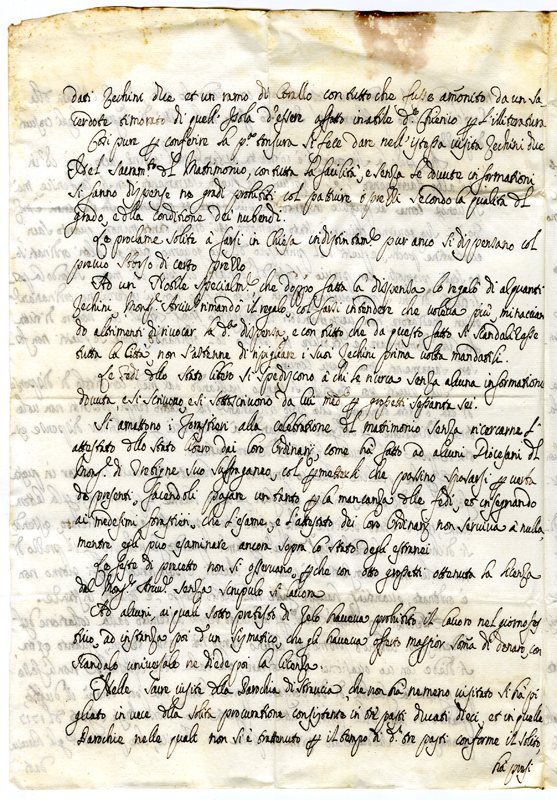 dati Zechini due et un ramo di Corallo con tutto che fusse amonito da un Sa
cerdote timorato di quell' Isola d'essere affatto inabile d.º Chierico ꝑ l'illiteratura
Così pure ꝑ conferire la p.ª tonsura si fece dare nell'istessa visita Zechini due
Nel Sacram.to del Matrimonio, con tutta la facilità, e senza le dovute informationi
si fanno dispense ne gradi prohibiti col pattuire i prezzi secondo la qualità del
grado, e della conditione de' nubendi.
Le proclame solite a farsi in Chiesa indistintam.te pur anco si dispensano col
previo sborso di certo prezzo
Ad un Nobile specialm.te che doppo fatta la dispensa lo regalò di alquanti
Zechini Mons.r Arciv.º rimandò il regalo, col farsi intendere che voleva più, minaccian
do altrimenti di rivocar la d.ª dispensa, e con tutto che da questo fatto si scandalizasse
tutta la Città, non s'astenne di ripigliare i suoi Zechini prima volta mandatili.
Le fedi dello stato libero si spediscono à chi le ricerca senza alcuna informatione
dovuta, e si scrivono, e si sottoscrivono da lui med.º ꝑ grossetti sessanta sei.
Si amettono i forastieri alla celebratione del matrimonio senza ricercarne l'
attestato dello stato libero dai loro Ordinarij, come hà fatto ad alcuni Diocesani del
Mons.r di suo suffraganeo, col ꝑmetterli che possino sposarsi ꝑ verba
de presenti, facendoli pagare un tanto ꝑ la mancanza delle fedi, et insegnando
ai medesimi forastieri, che l'esame, e l'attestato dei loro Ordinarij non serviva à nulla,
mentre egli può esaminare ancora sopra lo stato degli estranei
Le feste di precetto non si osservano, ꝑche con otto grossetti ottenuta la licenza
del Mons.r Arciv.º senza scrupulo si lavora
Ad alcuni, ai quali sotto pretesto di Zelo haveva prohibito il lavoro nel giorno fes
tivo, ad instanza poi d'un sismatico, che gli haveva offerto maggior soma di denaro, con
scandalo universale ne diede poi la licenza
Nelle Sacre visite della Parochia di, che non hà nemeno visitato si hà pi
gliato in vece della solita procuratione consistente in trè pasti ducati dieci, et in quelle
Parochie nelle quali non si è trattenuto ꝑ il tempo di d.i trè pasti conforme il solito
hà presi